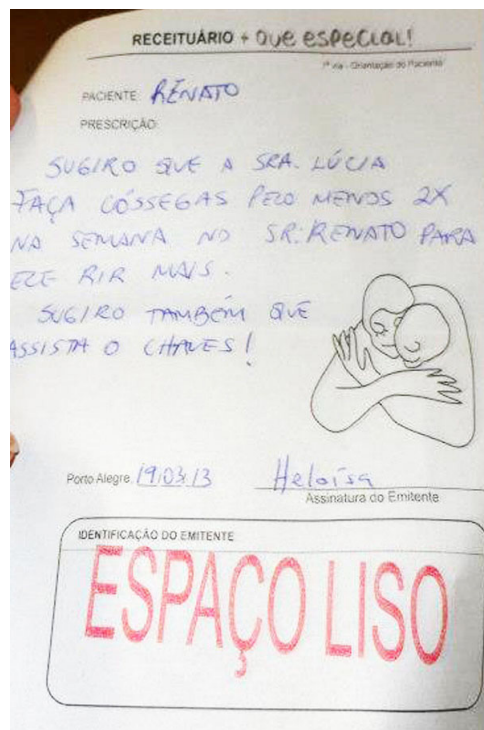 RECEITUÁRIO + QUE ESPECIAL!
1ª via - Orientação do Paciente
PACIENTE: RENATO
PRESCRIÇÃO:
SUGIRO QUE A SRA. LÚCIA
FAÇA CÓSSEGAS PELO MENOS 2X
NA SEMANA NO SR. RENATO PARA
ELE RIR MAIS.
SUGIRO TAMBÉM QUE
ASSISTA O CHAVES!
Porto Alegre, 19/03/13 Heloísa
Assinatura do Emitente
IDENTIFICAÇÃO DO EMITENTE
ESPAÇO LISO